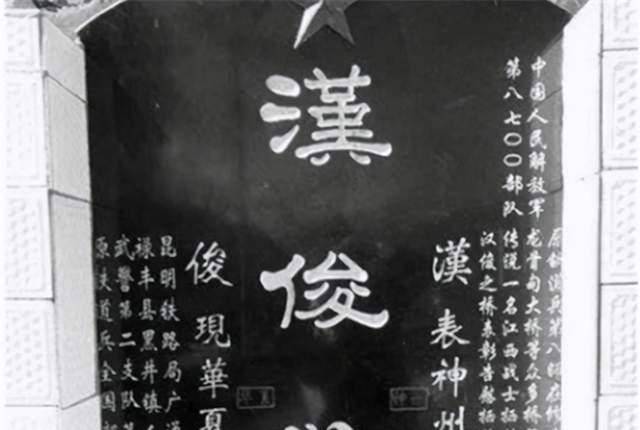 中国人民解放军
第八七〇〇部队
原铁道兵第八师在修
龙骨甸大桥等众多桥
传说一名江西战士栖
汉俊之桥表彰告慰栖
漢表神州
漢俊
俊現華夏
昆明铁路局广通
禄丰县黑井镇
武警第二支队
原铁道兵全国